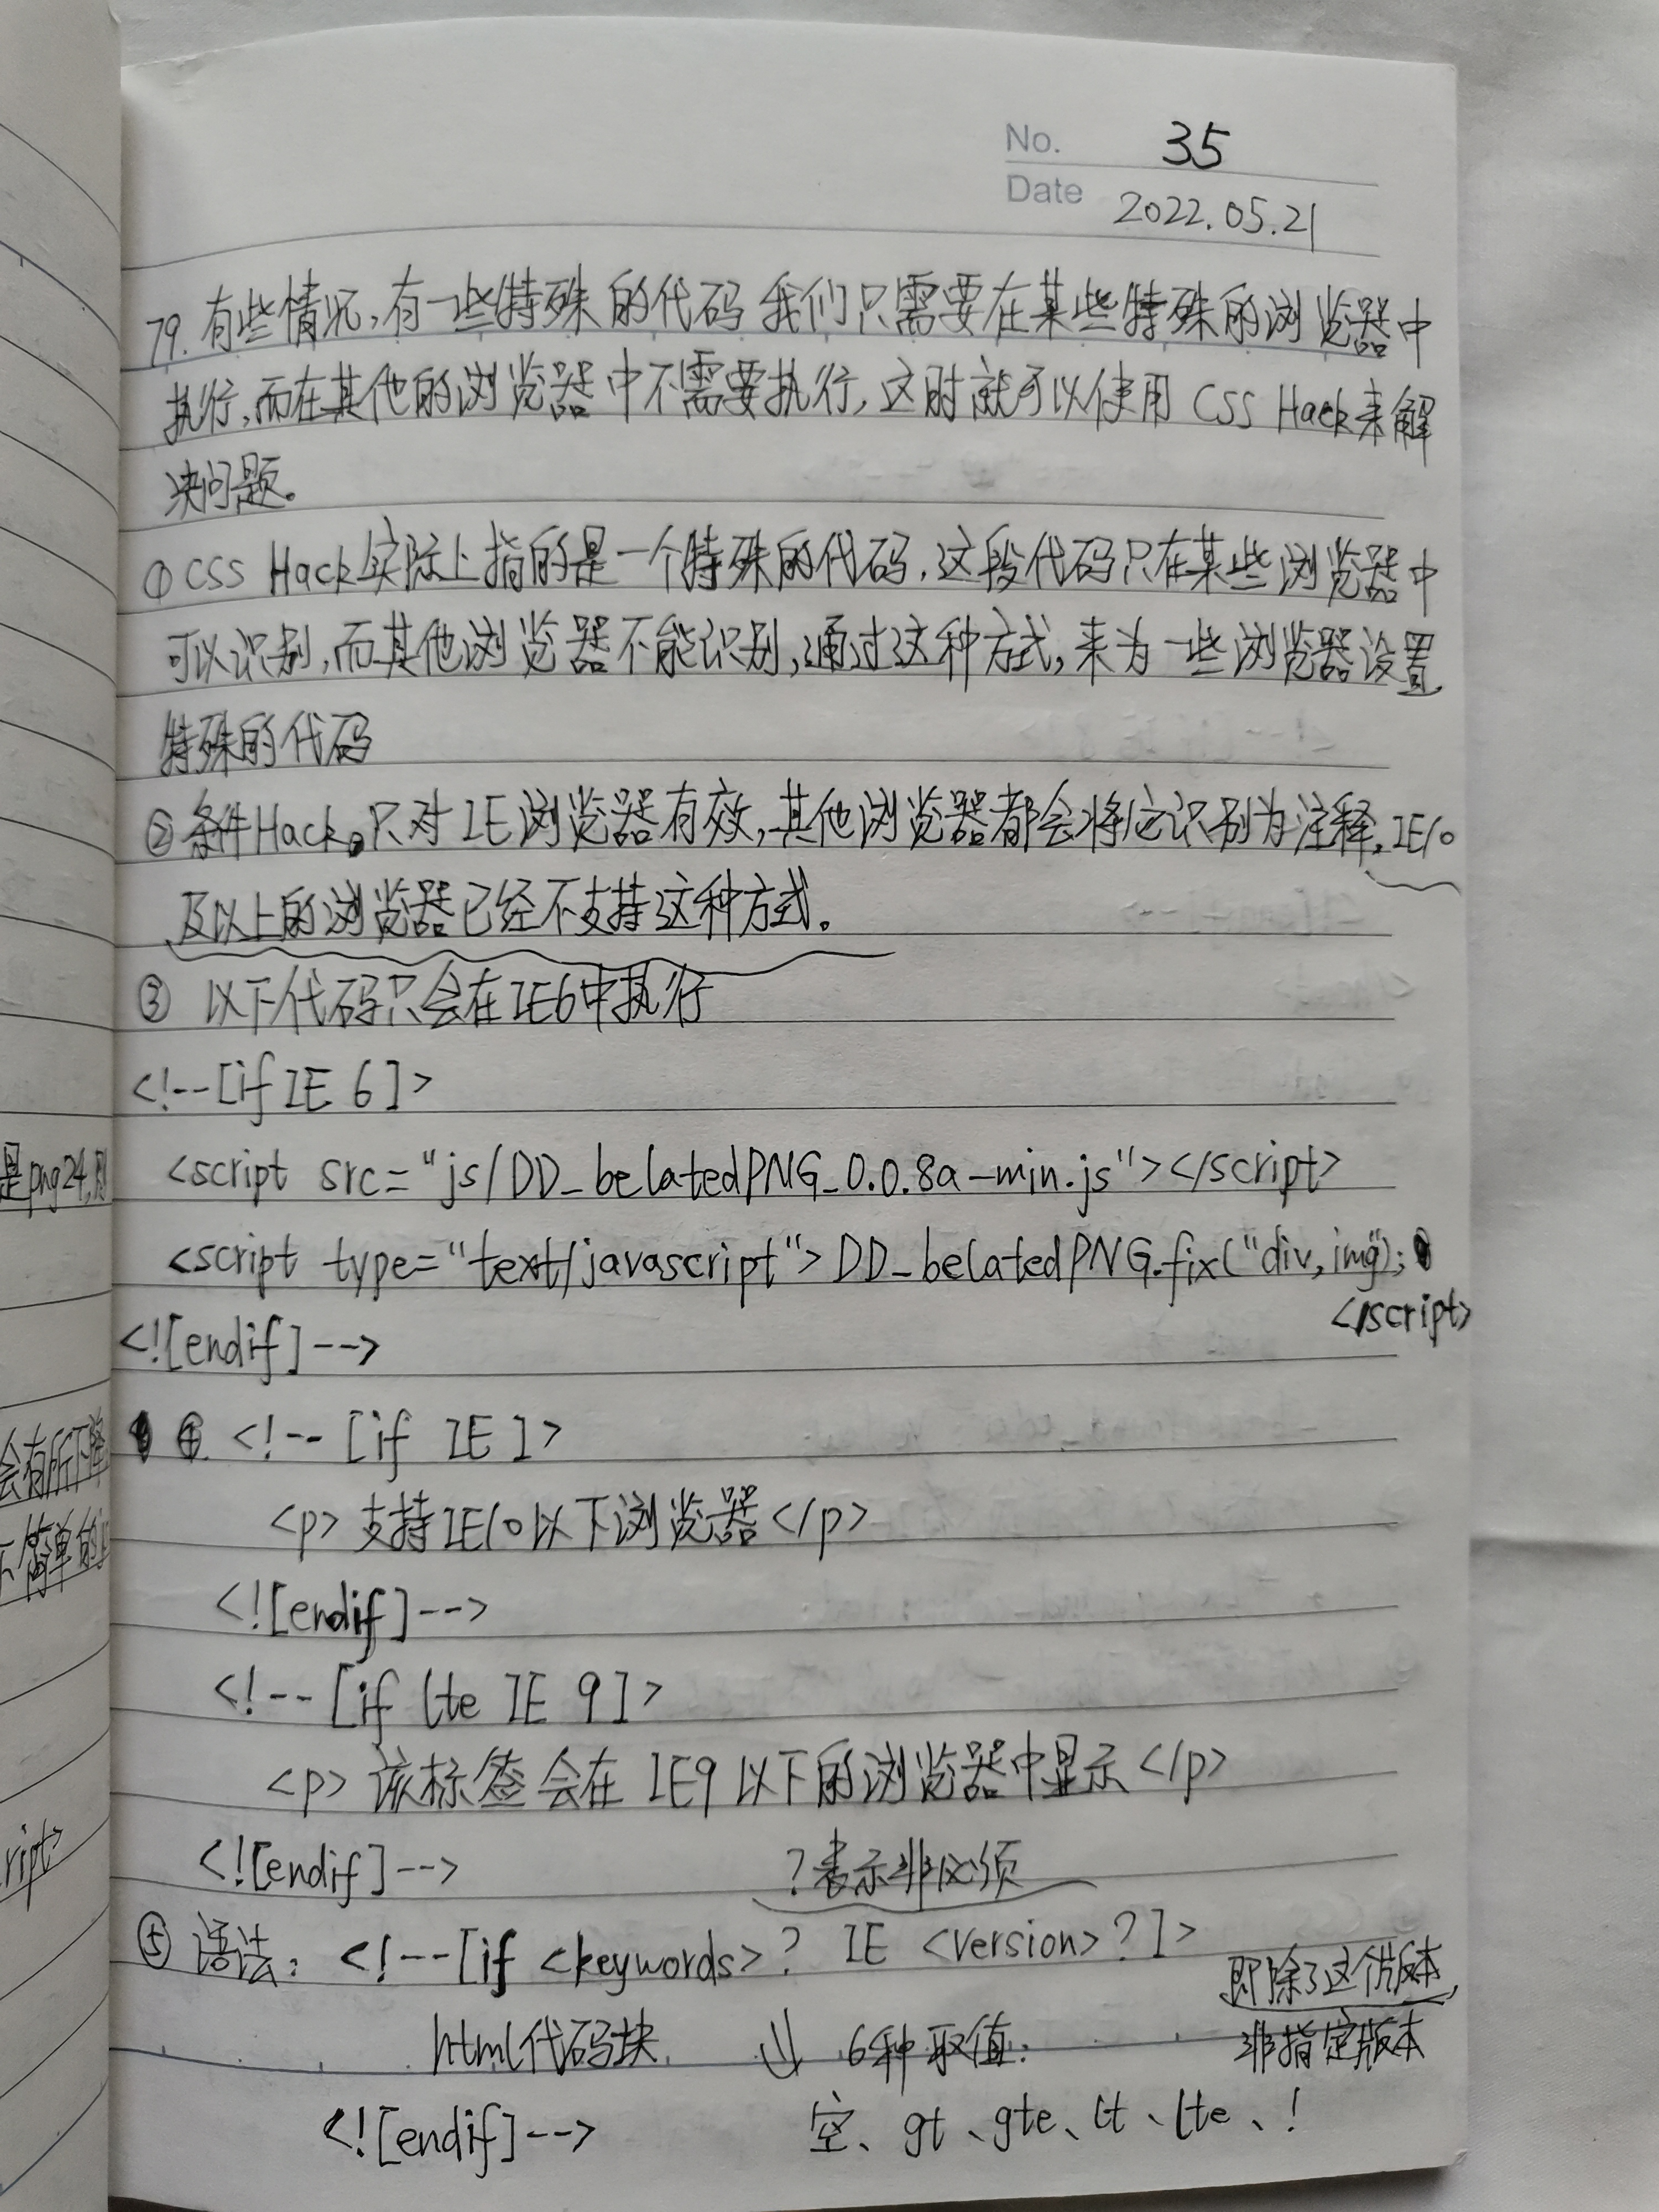 No. 35
Date 2022.05.21
79. 有些情况,有一些特殊的代码我们只需要在某些特殊的浏览器中
执行,而在其他的浏览器中不需要执行,这时就可以使用 CSS Hack来解
决问题。
① CSS Hack实际上指的是一个特殊的代码,这段代码只在某些浏览器中
可以识别,而其他浏览器不能识别,通过这种方式,来为一些浏览器设置
特殊的代码
② 条件Hack。只对IE浏览器有效,其他浏览器都会将它识别为注释,IE10
及以上的浏览器已经不支持这种方式。
③ 以下代码只会在IE6中执行
<!--[if IE 6]>
是png24,
<script src="js/DD_belatedPNG_0.0.8a-min.js"></script>
<script type="text/javascript">DD_belatedPNG.fix("div,img");
</script>
<![endif]-->
会有所下降
④. <!--[if IE]>
简单的
<p>支持IE10以下浏览器</p>
<![endif]-->
<!--[if lte IE 9]>
<p>该标签会在 IE9以下的浏览器中显示</p>
ript>
<![endif]--> ?表示非必须
⑤ 语法: <!--[if <keywords>? IE <version>?]>
即除了这个版本,
html代码块 ⇓ 6种取值: 非指定版本
<![endif]--> 空、gt、gte、lt、lte、!